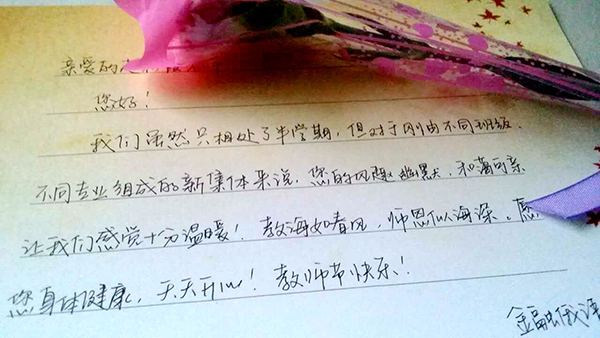 亲爱的
您好！
我们虽然只相处了半学期，但对于刚由不同班级、
不同专业组成的新集体来说，您的风趣幽默、和蔼可亲
让我们感觉十分温暖！教诲如春风，师恩似海深。愿
您身体健康，天天开心！教师节快乐！
金融俄语